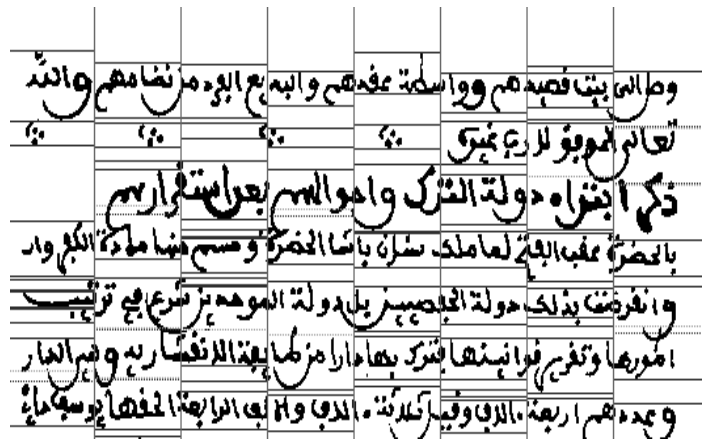 وطالى بيت فصيدهم وواسطة عقدهم والبديع الفرد من نضامهم والله
تعالى الموفق لا رب غيره
ذكر ابتداء دولة الترك واحوالهم بعد استقرارهم
بالحضرة عقب الفتح لما ملك سنان باشا الحضرة وحسم منها مادة الكفر وار
وانقرضت بذلك دولة الحفصيين بل دولة الموحدين شرع في ترتيب
امورها وتقرير قوانينها فترك بها دارا من طايفة الانقشارية وهم الدار
وعددهم اربعة الاف وقيل ثلاثة الاف